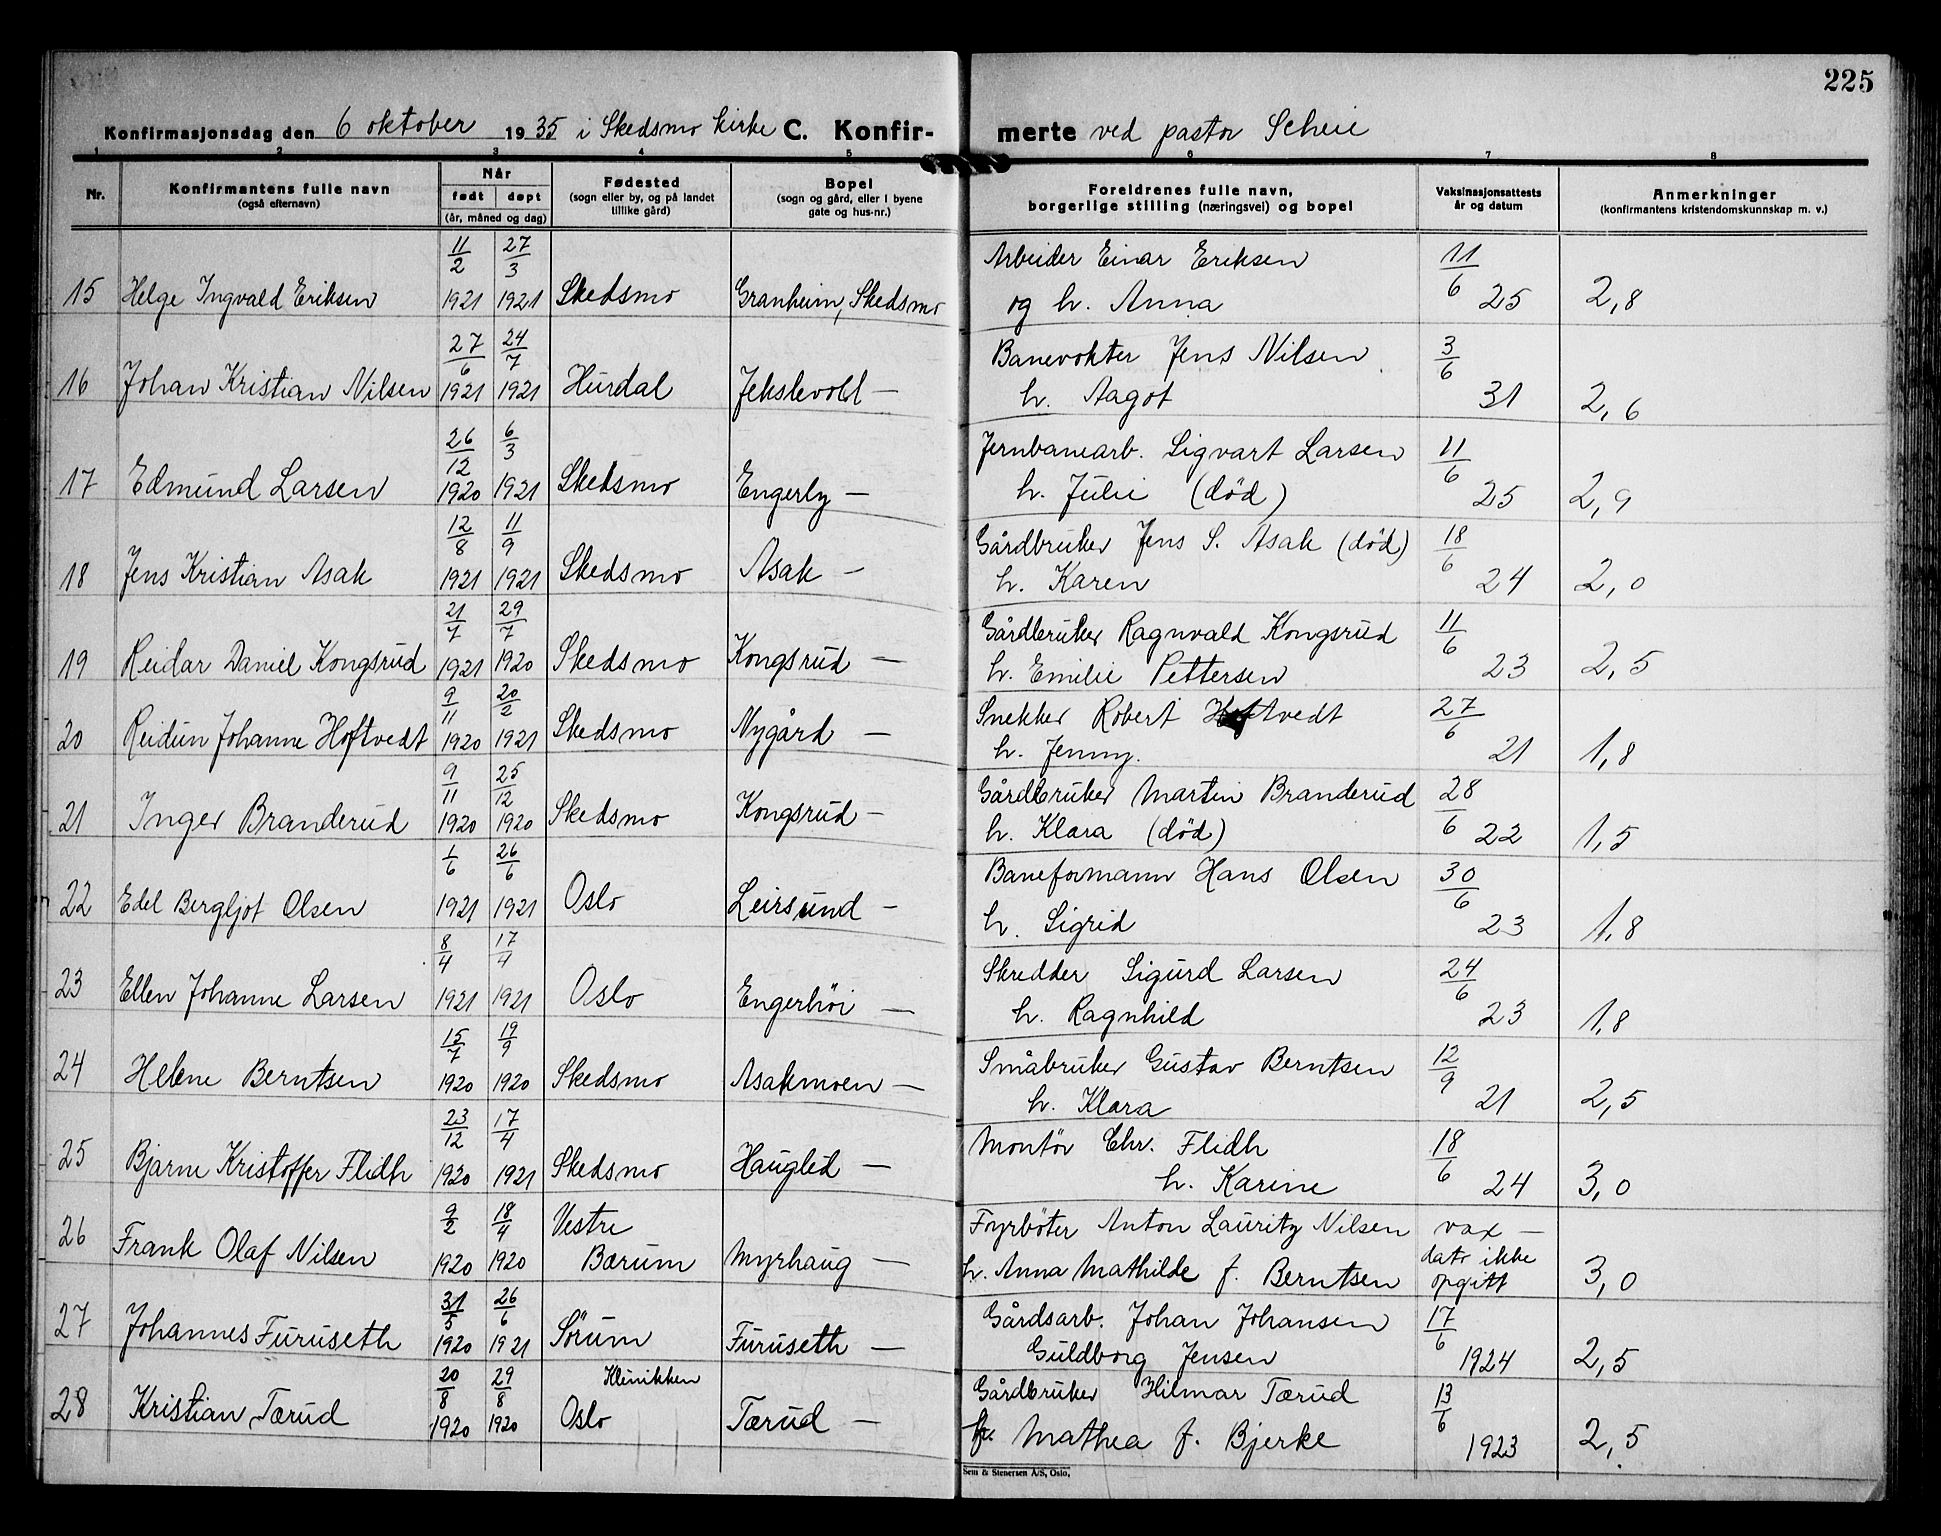 225
Konfirmasjonsdag den 6 oktober 1935 i Skedsmo kirke C. Konfir- merte ved pastor Scheie
1 2 3 4 5 6 7 8
Nr. Konfirmantens fulle navn (også efternavn) Når født døpt (år, måned og dag) Fødested (sogn eller by, og på landet tillike gård) Bopel (sogn og gård, eller i byene gate og hus-nr.) Foreldrenes fulle navn, borgerlige stilling (næringsvei) og bopel Vaksinasjonsattests år og datum Anmerkninger (konfirmantens kristendomskunnskap m. v.)
11/2 27/3 Arbeider Einar Eriksen 11/6
15 Helge Ingvald Eriksen 1921 1921 Skedsmo Granheim, Skedsmo og h. Anna 25 2,8
27/6 24/7 Banevokter Jens Nilsen 3/6
16 Johan Kristian Nilsen 1921 1921 Hurdal Jekslevold — h. Aagot 31 2,6
26/12 6/3 Jernbanearb. Sigvart Larsen 11/6
17 Edmund Larsen 1920 1921 Skedsmo Engerby — h. Julie (død) 25 2,9
12/8 11/9 Gårdbruker Jens S. Asak (død) 18/6
18 Jens Kristian Asak 1921 1921 Skedsmo Asak — h. Karen 24 2,0
21/7 29/7 Gårdbruker Ragnvald Kongsrud 11/6
19 Reidar Daniel Kongsrud 1921 1920 Skedsmo Kongsrud — h. Emilie Pettersen 23 2,5
9/11 20/2 Snekker Robert Hoftvedt 27/6
20 Reidun Johanne Hoftvedt 1920 1921 Skedsmo Nygård — h. Jenny. 21 1,8
9/11 25/12 Gårdbruker Martin Branderud 28/6
21 Inger Branderud 1920 1920 Skedsmo Kongsrud — h. Klara (død) 22 1,5
1/6 26/6 Baneformann Hans Olsen 30/6
22 Edel Bergljot Olsen 1921 1921 Oslo Leirsund — h. Sigrid 23 1,8
8/4 17/4 Skredder Sigurd Larsen 24/6
23 Ellen Johanne Larsen 1921 1921 Oslo Engerhöi — h. Ragnhild 23 1,8
15/7 19/9 Småbruker Gustav Berntsen 12/9
24 Helene Berntsen 1920 1920 Skedsmo Asakmoen — h. Klara 21 2,5
23/12 17/4 Montör Chr. Flidh 18/6
25 Bjarne Kristoffer Flidh 1920 1921 Skedsmo Haugled — h. Karine 24 3,0
9/2 18/4 Vestre Fyrböter Anton Lauritz Nilsen vax —
26 Frank Olaf Nilsen 1920 1920 Bærum Myrhaug — h. Anna Mathilde f. Berntsen dato ikke opgitt 3,0
31/5 26/6 Gårdsarb. Johan Johansen 17/6
27 Johannes Furuseth 1920 1921 Sørum Furuseth — Guldborg Jensen 1924 2,5
20/8 29/8 Klinikken Gårdbruker Hilmar Tærud 13/6
28 Kristian Tærud 1920 1920 Oslo Tærud — h. Mathea f. Bjerke 1923 2,5
Sem & Stenersen A/S, Oslo.